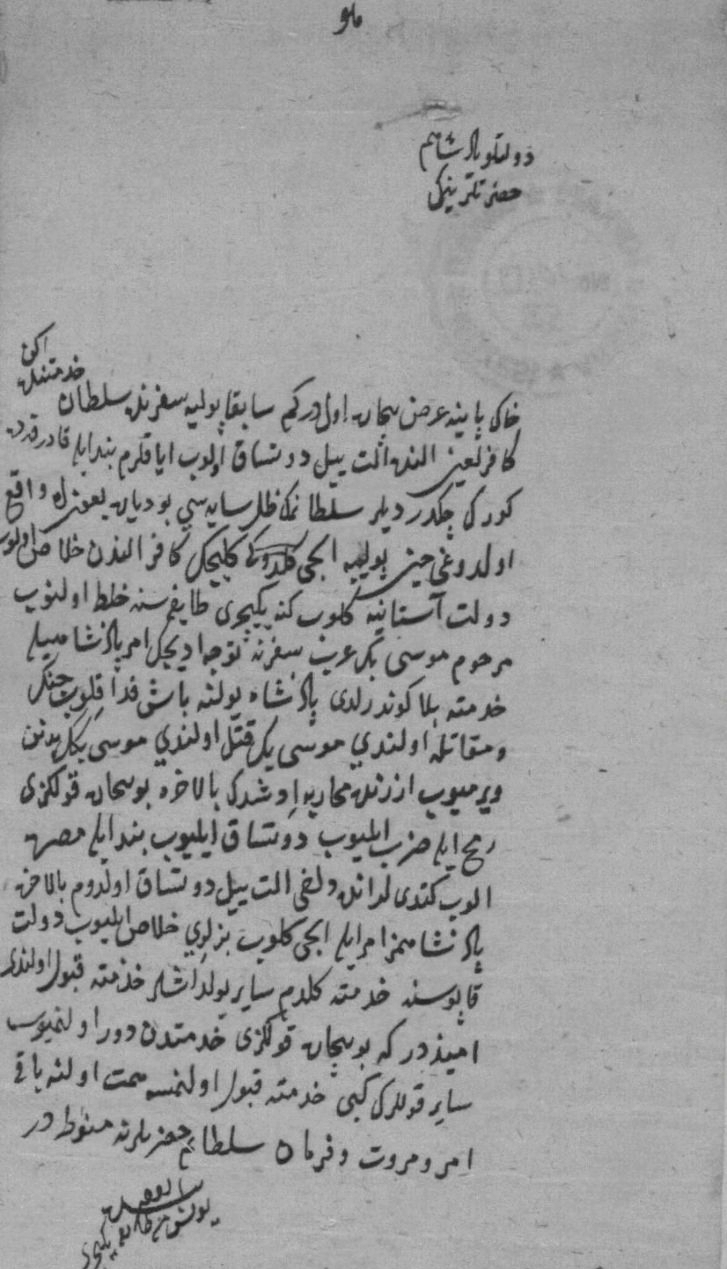 هو
دولتلو پادشاهم
حضرتلرینك
خاك پاینه عرض بیچاره اولدركم سابقا پولیه سفرنده سلطان خدمتنده ایكن
كافر لعین النده التی ییل دوتساق اولوب ایاقلرم بند ایله قادرقه ده
كورك چكدردیلر سلطانمك ظل سایه سی بودیاره واقع
اولدوغی حین پولیه ایلچی كلدوكی كلیجك كافر الندن خلاص اولوب
دولت آستانیه كلوب كنه یكیچری طایفه سنه خلط اولنوب
مرحوم موسی بك عرب سفرنه توجه ایدیجك امر پادشاهیله
خدمته بله كوندرلدی پادشاه یولنه باش فدا قلوب جنك
ومقاتله اولندی موسی بك قتل اولندی موسی بكك
ویرمیوب ارزنده محاربه دوشدك بالاخره بو بیچاره قولكزی
رمح ایله ضرب ایلیوب دوتساق ایلیوب بند ایله مصره
الوب كتدیلر انده دخی التی ییل دوتساق اولدوم بالاخره
پادشاهمز امر ایله ایلچی كلوب بزلری خلاص ایلیوب دولت
قاپوسنه خدمته كلدم سایر یولداشلر خدمته قبول اولندی
امیددر كه بو بیچاره قولكزی خدمتدن دور اولنمیوب
سایر قوللرك كبی خدمته قبول اولنمسنه همت اولنه باقی
امر و مروت و فرمان سلطانم حضرتلرنه منوطدر
بنده
یونس